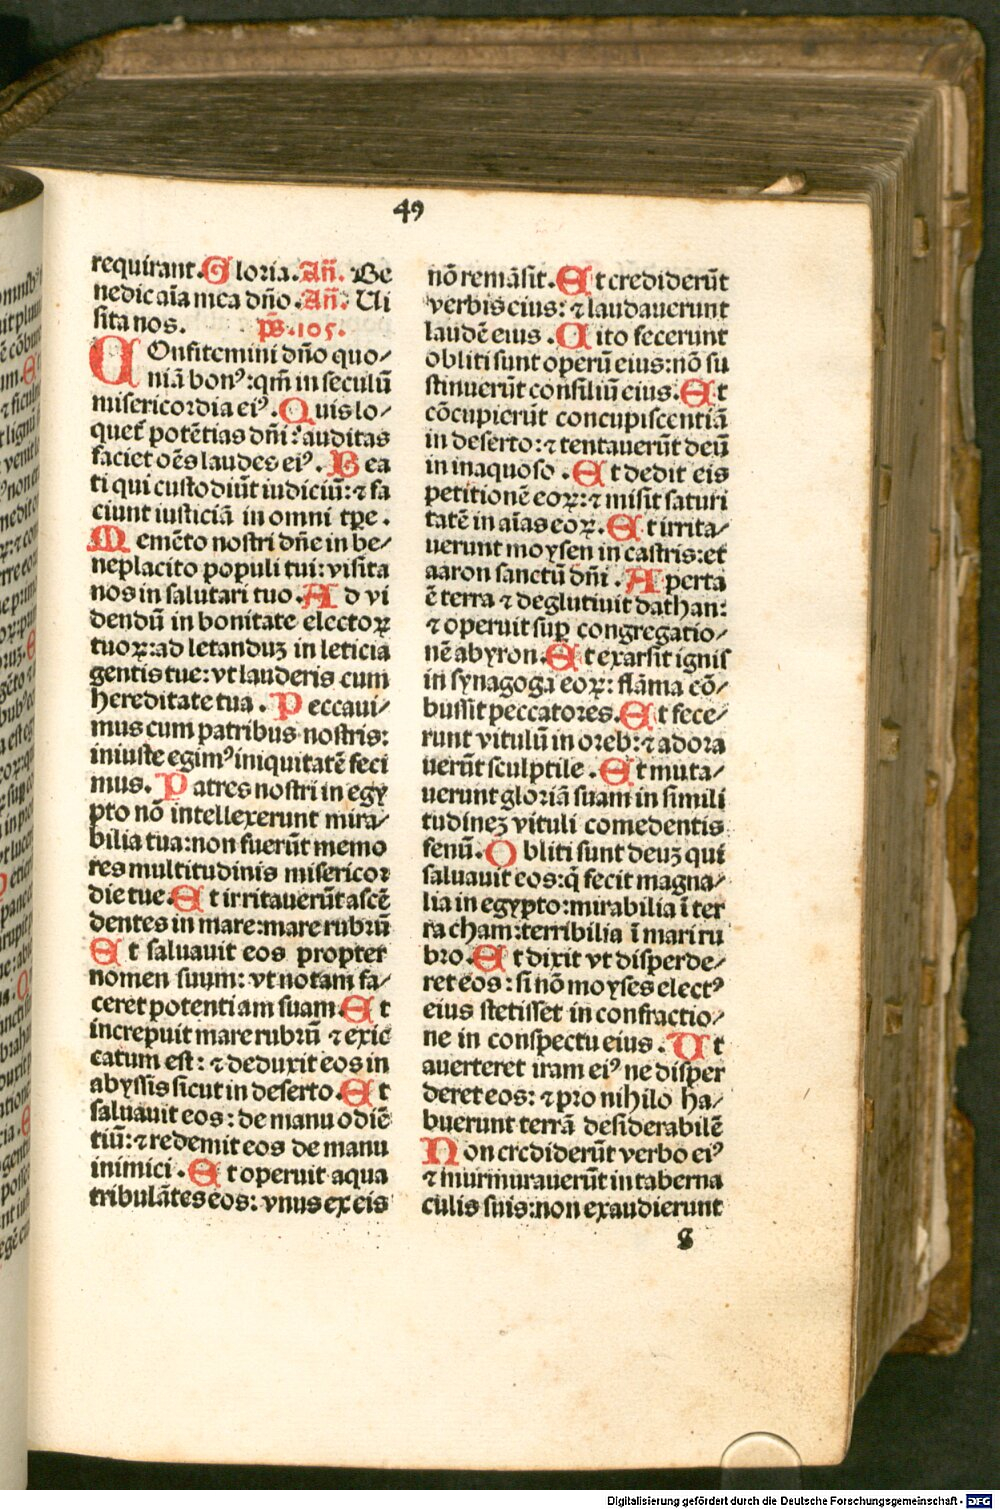 49
requirant. Gloria. Añ. Be
nedic aīa mea dño. Añ. Ui
sita nos. ps. 105.
COnfitemini dño quo/
niā bonꝰ: qm̄ in seculū
misericordia eiꝰ. Quis lo/
quet᷑ potētias dñi: auditas
faciet oēs laudes eiꝰ. Bea
ti qui custodiūt iudiciū: ⁊ fa
ciunt iusticiā in omni tꝑe.
Memēto nostri dñe in be/
neplacito populi tui: visita
nos in salutari tuo. Ad vi
dendū in bonitate electoꝝ
tuoꝝ: ad letanduꝫ in leticia
gentis tue: vt lauderis cum
hereditate tua. Peccaui/
mus cum patribus nostris:
iniuste egimꝰ iniquitatē feci
mus. Patres nostri in egy
pto nō intellexerunt mira/
bilia tua: non fuerūt memo
res multitudinis misericor
die tue. Et irritauerūt ascē
dentes in mare: mare rubrū
Et saluauit eos propter
nomen suum: vt notam fa/
ceret potentiam suam. Et
increpuit mare rubrū ⁊ exic
catum est: ⁊ deduxit eos in
abyssis sicut in deserto. Et
saluauit eos: de manu odiē
tiū: ⁊ redemit eos de manu
inimici. Et operuit aqua
tribulātes eos: vnus ex eis
nō remāsit. Et crediderūt
verbis eius: ⁊ laudauerunt
laudē eius. Cito fecerunt
obliti sunt operū eius: nō su
stinuerūt consiliū eius. Et
cōcupierūt concupiscentiā
in deserto: ⁊ tentauerūt deū
in inaquoso. Et dedit eis
petitionē eoꝝ: ⁊ misit saturi
tatē in aīas eoꝝ. Et irrita/
uerunt moysen in castris: et
aaron sanctū dñi. Aperta
ē terra ⁊ deglutiuit dathan:
⁊ operuit suꝑ congregatio/
nē abyron. Et exarsit ignis
in synagoga eoꝝ: flāma cō/
bussit peccatores. Et fece/
runt vitulū in oreb: ⁊ adora
uerūt sculptile. Et muta/
uerunt gloriā suam in simili
tudineꝫ vituli comedentis
fenū. Obliti sunt deuꝫ qui
saluauit eos: q̄ fecit magna/
lia in egypto: mirabilia ī ter
ra cham: terribilia ī mari ru
bro. Et dixit vt disperde/
ret eos: si nō moyses electꝰ
eius stetisset in confractio/
ne in conspectu eius. Ut
auerteret iram eiꝰ ne disper
deret eos: ⁊ pro nihilo ha/
buerunt terrā desiderabilē
Non crediderūt verbo eiꝰ
⁊ murmurauerūt in taberna
culis suis: non exaudierunt
g
Digitalisierung gefördert durch die Deutsche Forschungsgemeinschaft - DFG